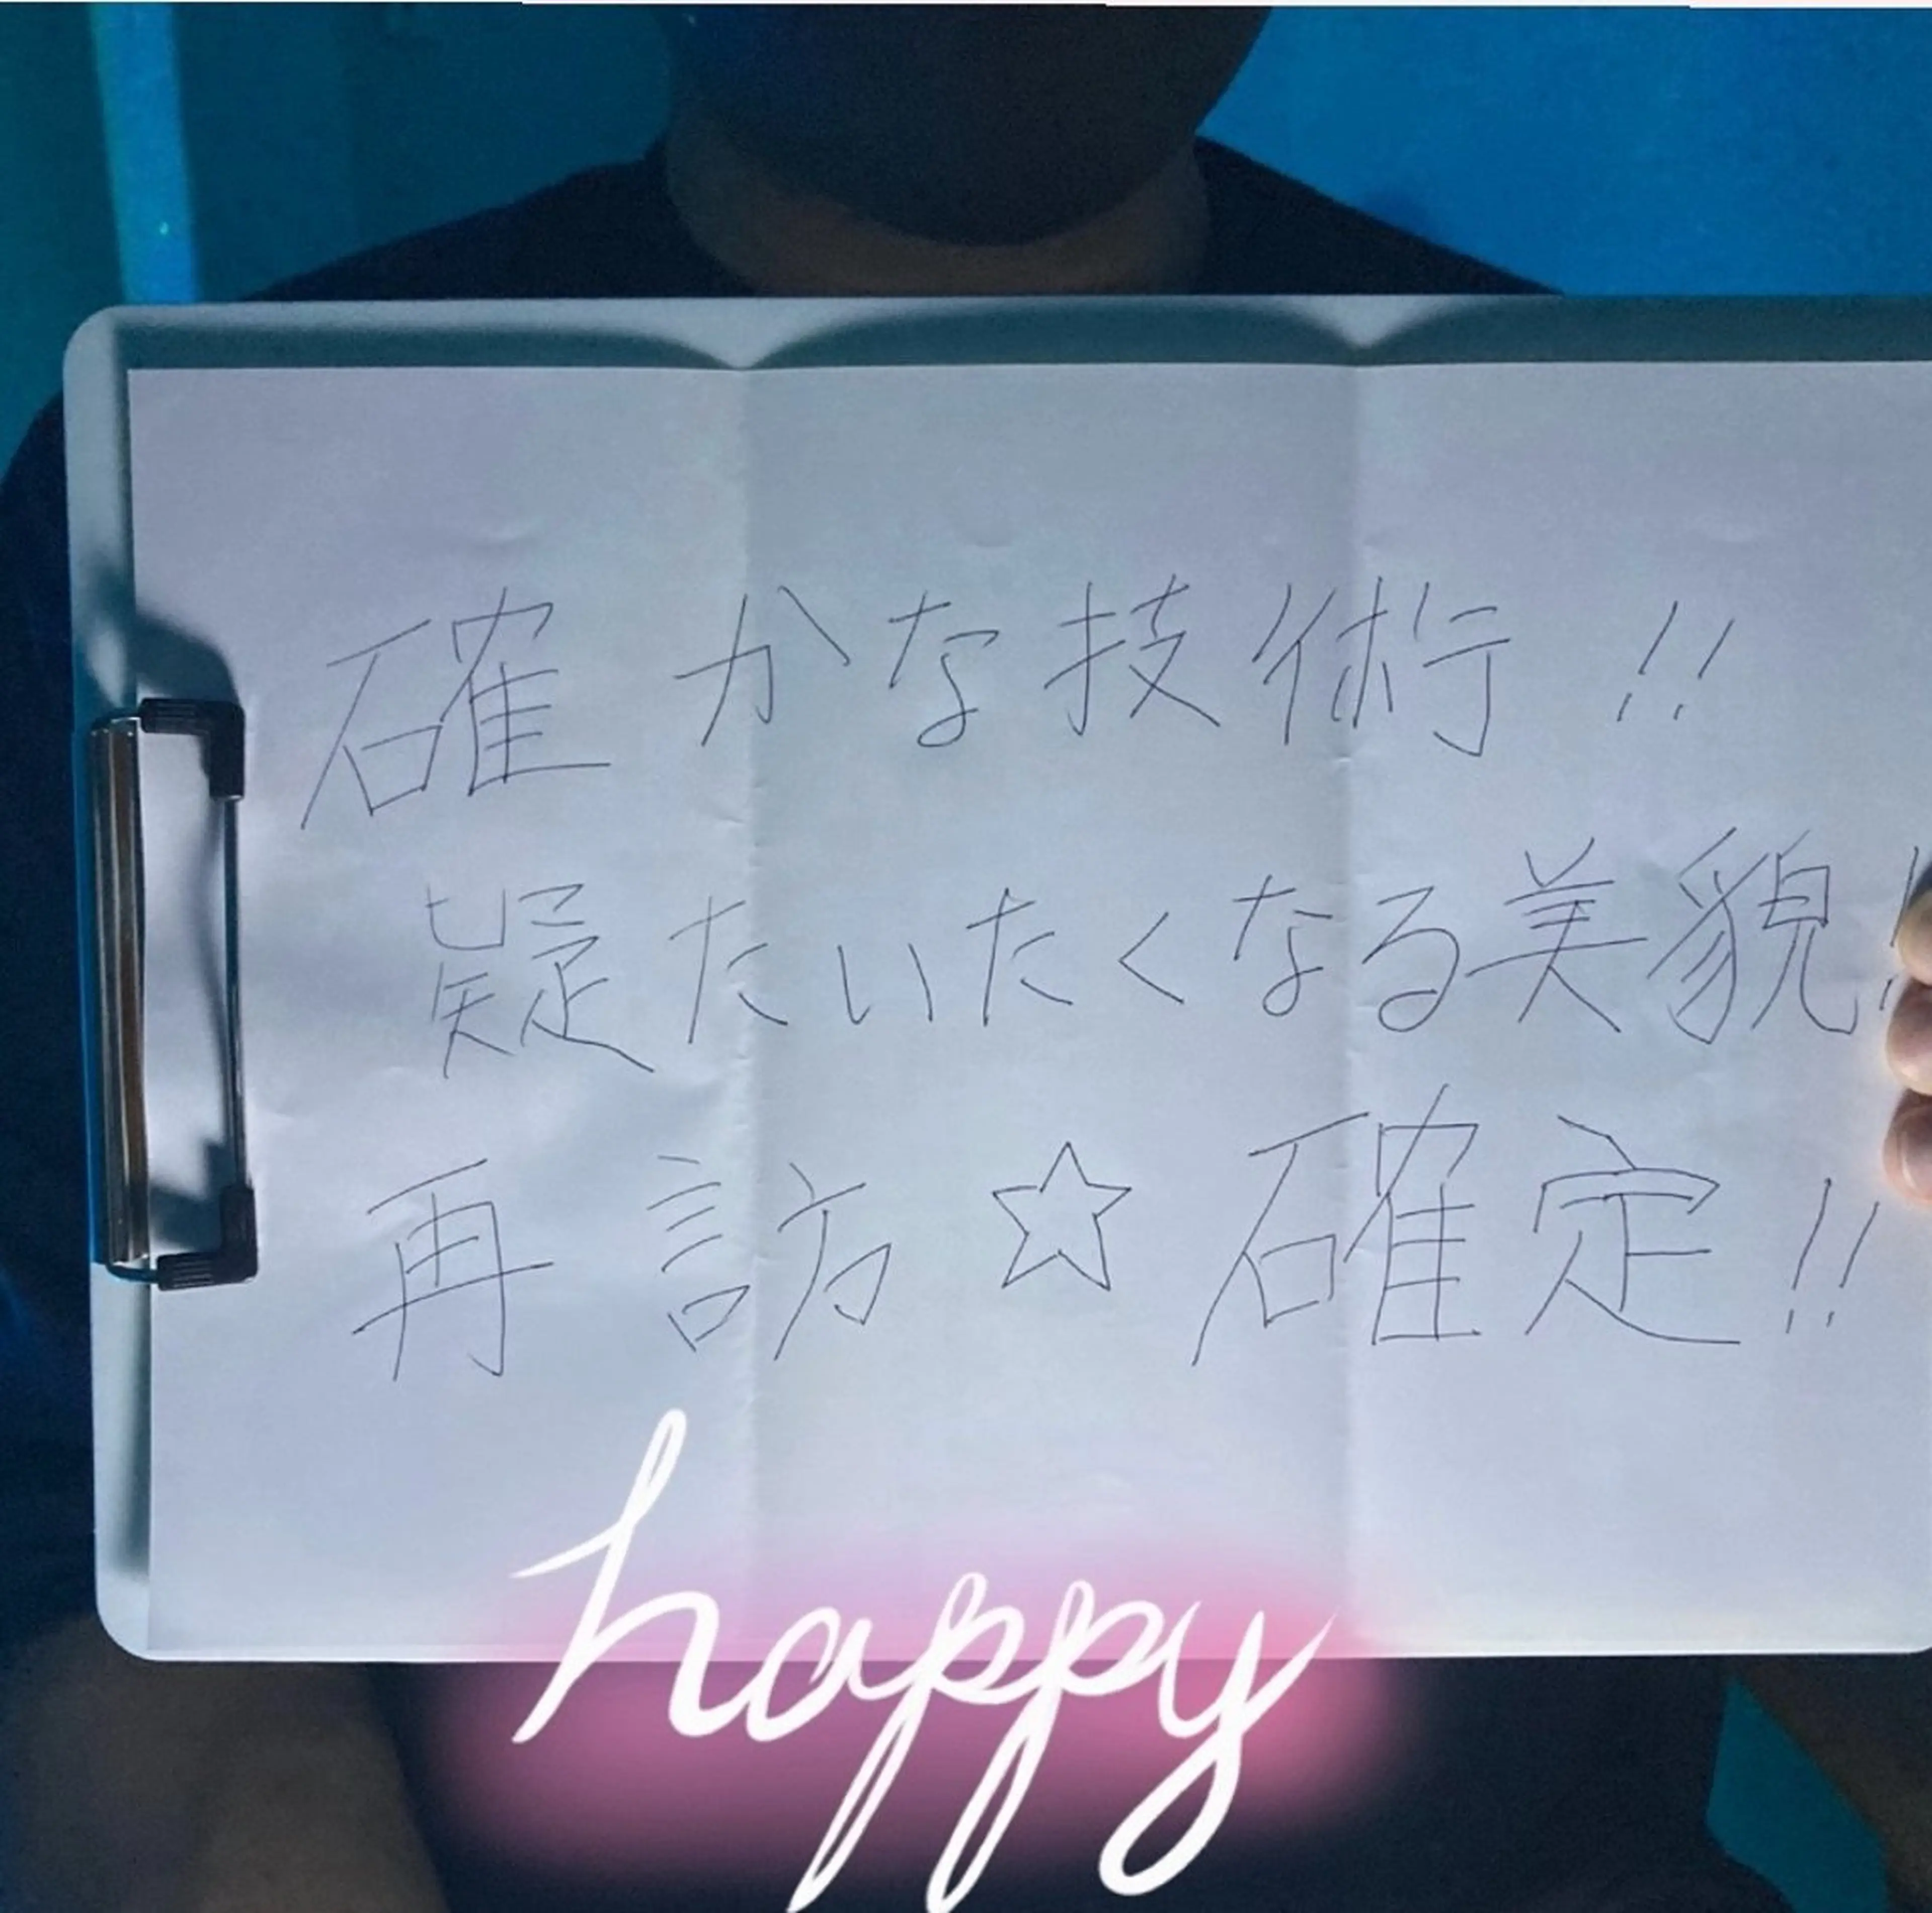 確かな技術!!
疑たいたくなる美貌!
再訪☆確定!!
happy